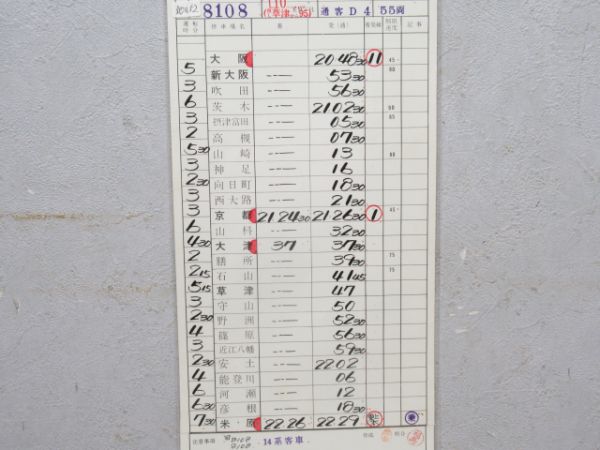 8108 110 (草津 95) 通客D4 55両
運転時分 停車場名 着 発(通) 着発線 制限速度 記事
大阪 20 48 30 11 45
5 新大阪 53 30
3 吹田 56 30
6 茨木 21 02 30
3 摂津富田 05 30
2 高槻 07 30
5 30 山崎 13
3 神足 16
2 30 向日町 18 30
3 西大路 21 30
3 京都 21 24 30 21 26 30 1 45
6 山科 32 30
4 30 大津 37 37 30
2 膳所 39 30
2 15 石山 41 45
5 15 草津 47
3 守山 50
2 30 野洲 52 30
4 篠原 56 30
3 近江八幡 59 30
2 30 安土 22 02
4 能登川 06
6 河瀬 12
6 30 彦根 18 30
7 30 米・原 22 26 22 29 乗
注意事項 14系客車